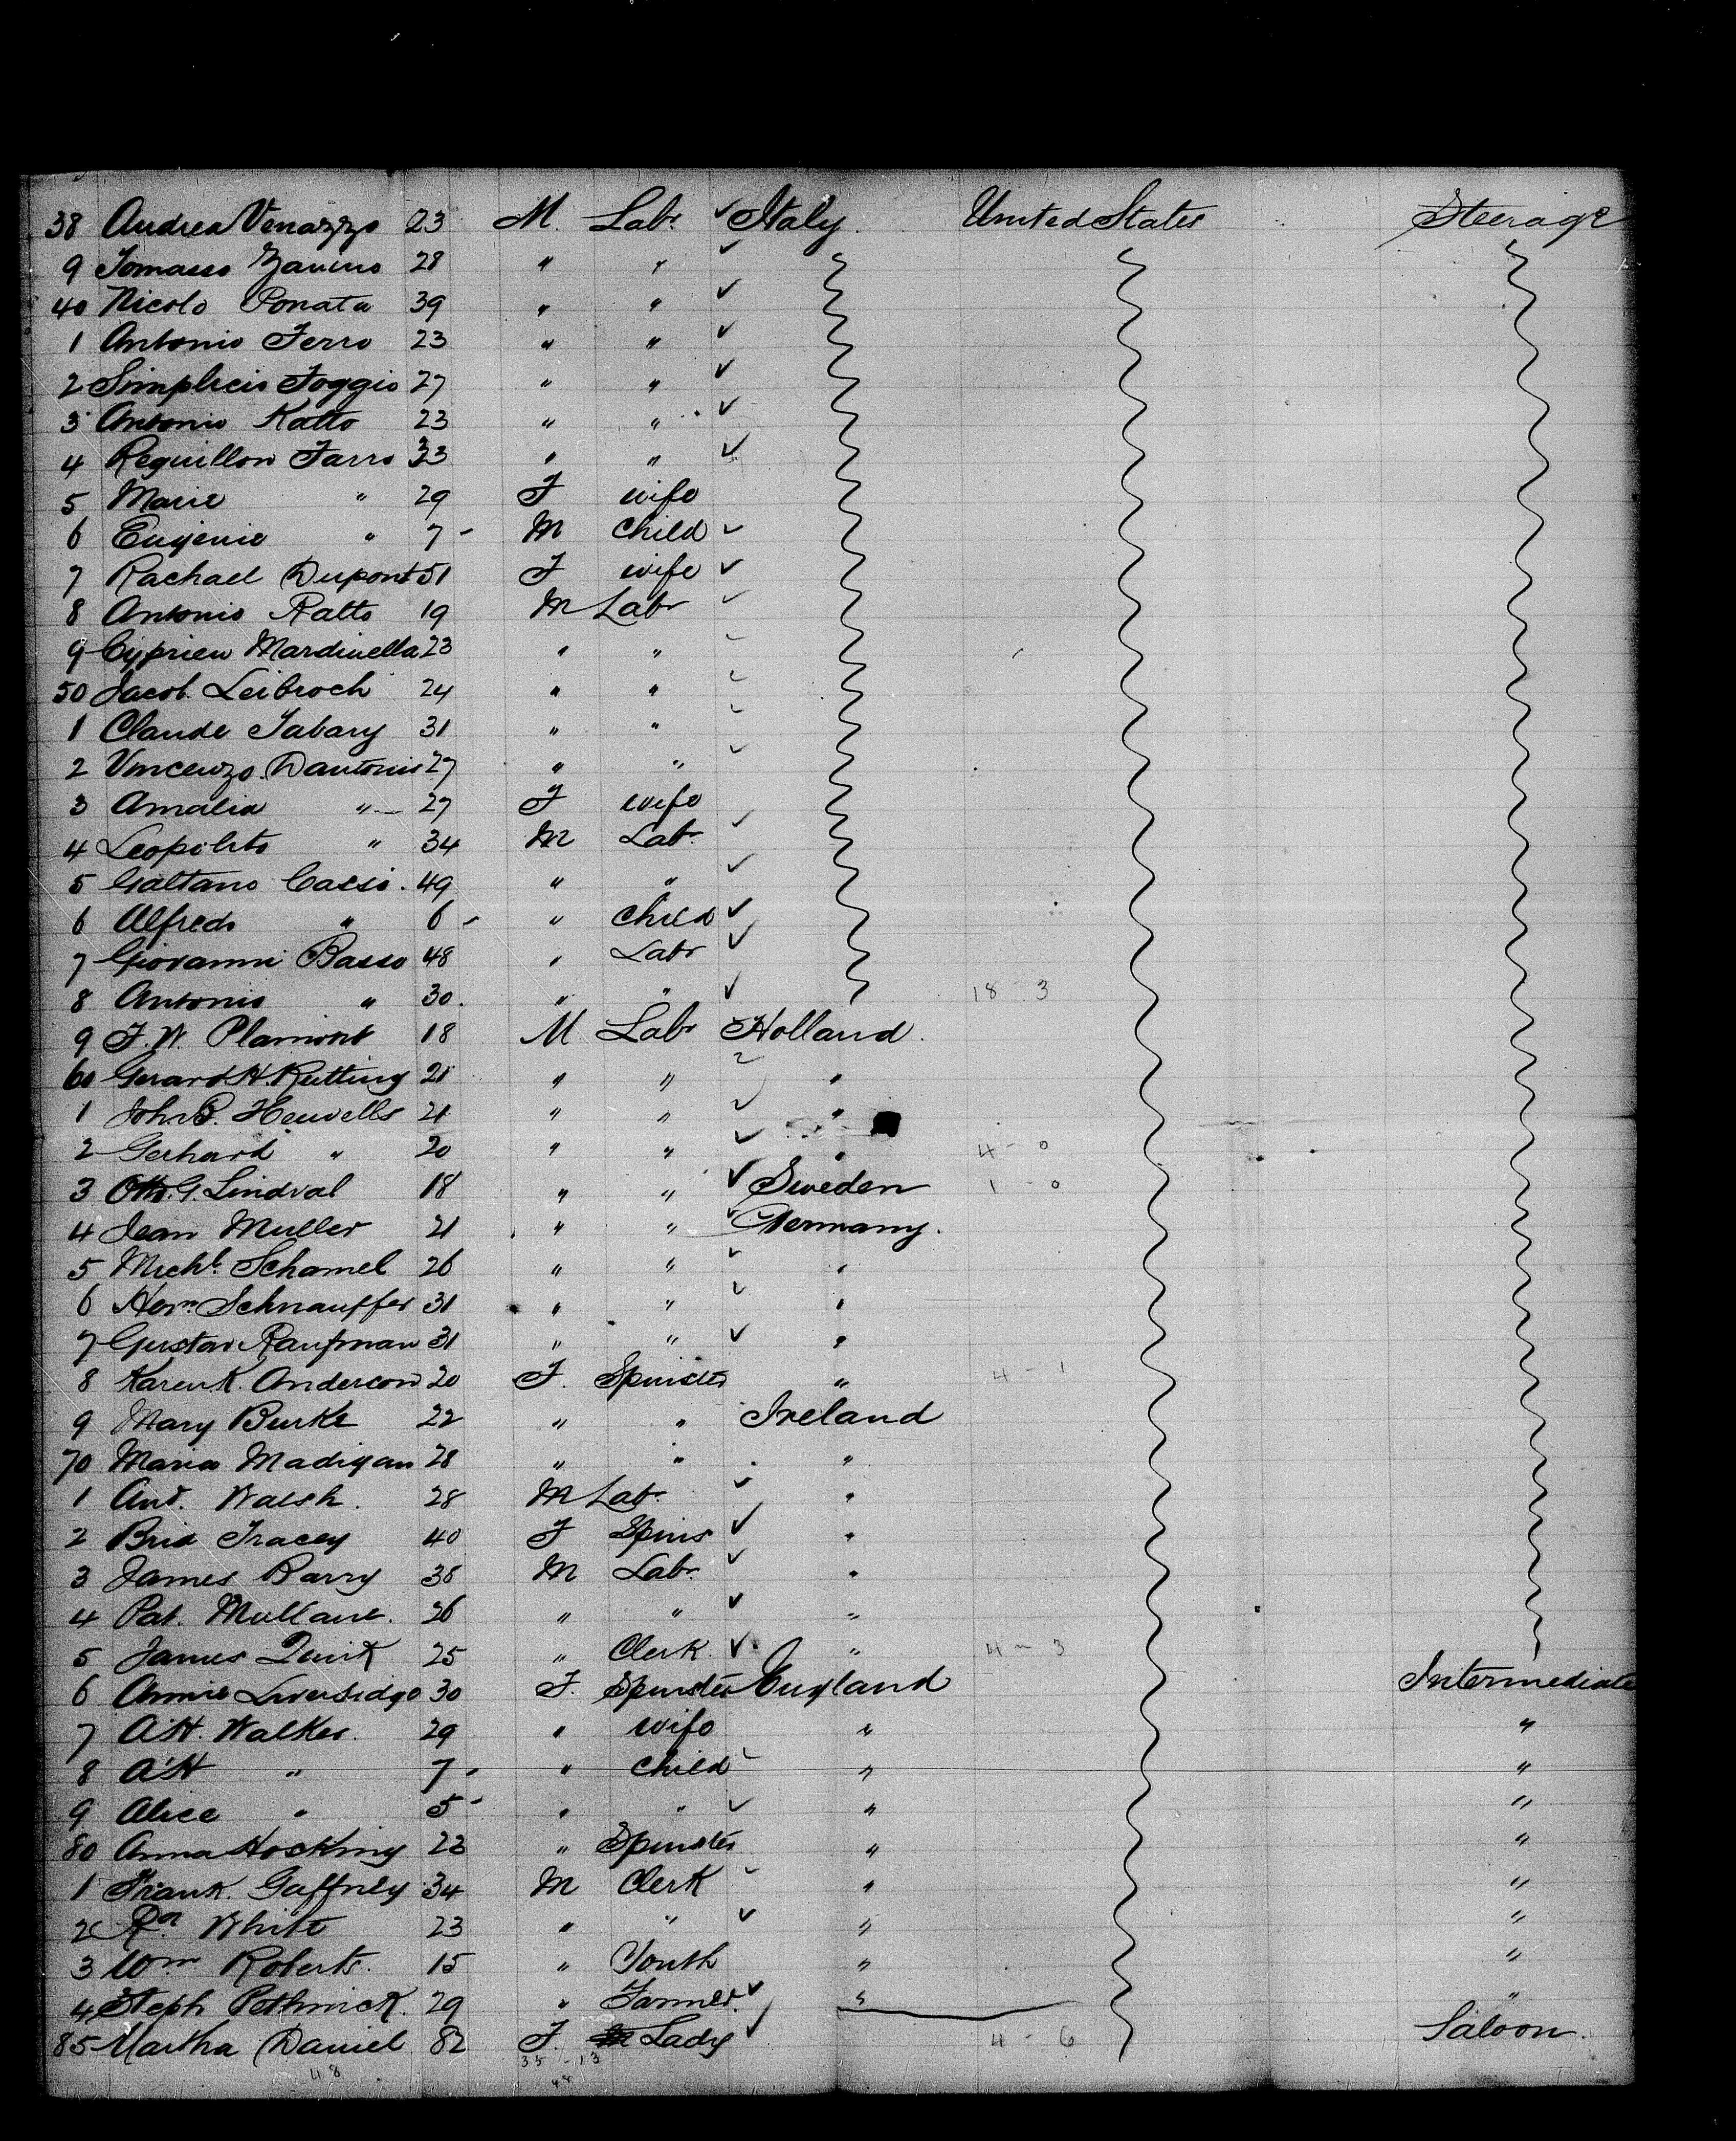 38 Andrea Venazzo 23 M. Labr ✓ Italy. United States Steerage
9 Tomasso Zanino 28 " " ✓
40 Nicolo Ponata 39 " " ✓
1 Antonio Ferro 23 " " ✓
2 Simplicio Foggio 27 " " ✓
3 Antonio Katto 23 " " ✓
4 Reguillon Farro 33 " " ✓
5 Marie " 29 F wife
6 Eugenie " 7 - M Child ✓
7 Rachael Dupont 51 F wife ✓
8 Antonio Ratto 19 M Labr ✓
9 Cyprien Mardinella 23 " " ✓
50 Jacob Leibroch 24 " " ✓
1 Claude Tabary 31 " " ✓
2 Vincenzo Dantonis 27 " " ✓
3 Amalia " 27 F wife
4 Leopolito " 34 M Labr. ✓
5 Galtano Cassio. 49 " " ✓
6 Alfredo " 6 - " Child ✓
7 Giovanni Basso 48 " Labr ✓
8 Antonio " 30. " " ✓ 18 - 3
9 F. W. Plamont 18 M Labr Holland.
60 Gerard H. Rutting 21 " " ✓ "
1 John Heuvells 21 " " ✓ "
2 Gerhard " 20 " " ✓ " 4 - 0
3 Otto. G. Lindval 18 " " ✓ Sweden 1 - 0
4 Jean Muller 21 " " ✓ Germany.
5 Michl. Schamel 26 " " ✓ "
6 Hern. Schnauffer 31 " " ✓ "
7 Gustav Raufman 31 " " ✓ "
8 Karen K. Anderson 20 F. Spinster " 4 - 1
9 Mary Burke 22 " " Ireland
70 Maria Madigan 28 " " "
1 And. Walsh. 28 M Labr. ✓ "
2 Brid Tracey 40 F Spins ✓ "
3 James Barry 38 M Labr. ✓ "
4 Pat. Mullane. 26 " " ✓ "
5 James Quirk 25 " Clerk. ✓ " 4 - 3
6 Annie Liversidge 30 F. Spinster England Intermediate
7 A. H. Walker. 29 " wife " "
8 A. H " 7 - " Child ✓ " "
9 Alice " 5 - " " ✓ " "
80 Anna Hocking 23 " Spinster " "
1 Frank. Gaffney 34 M Clerk ✓ " "
2 White 23 " " ✓ " "
3 Wm Roberts. 15 " Youth " "
4 Steph Pethwick. 29 " Farmer. ✓ " "
85 Martha Daniel 82 F. Lady ✓ 4 - 6 Saloon.
48 35 - 13
48